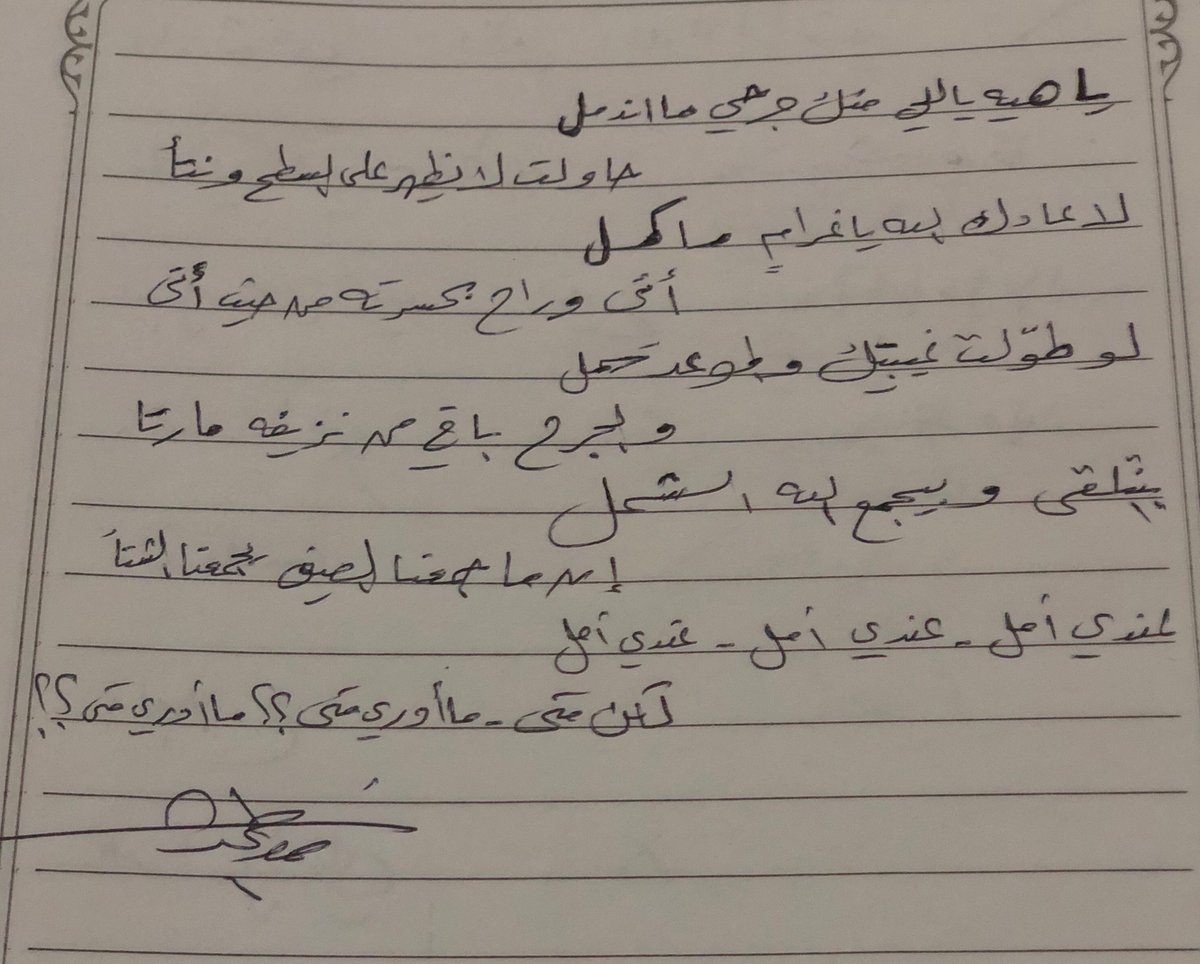 يا هيه ياللي منك جرحي ما اندمل
حاولت لا يظهر على السطح ونتأ
لا عادك الله يا غرامٍ ما كمل
أتى وراح بكسرته من حيث أتى
لو طوّلت غيبتك والموعد تحمل
والجرح باقي من نزيفه مارتا
نتلقى ويجمع الله الشمل
إن ما جمعنا الصيف يجمعنا الشتا
عندي أمل - عندي أمل - عندي أمل
لكن متى - ما أدري متى ؟؟ ما أدري متى ؟؟